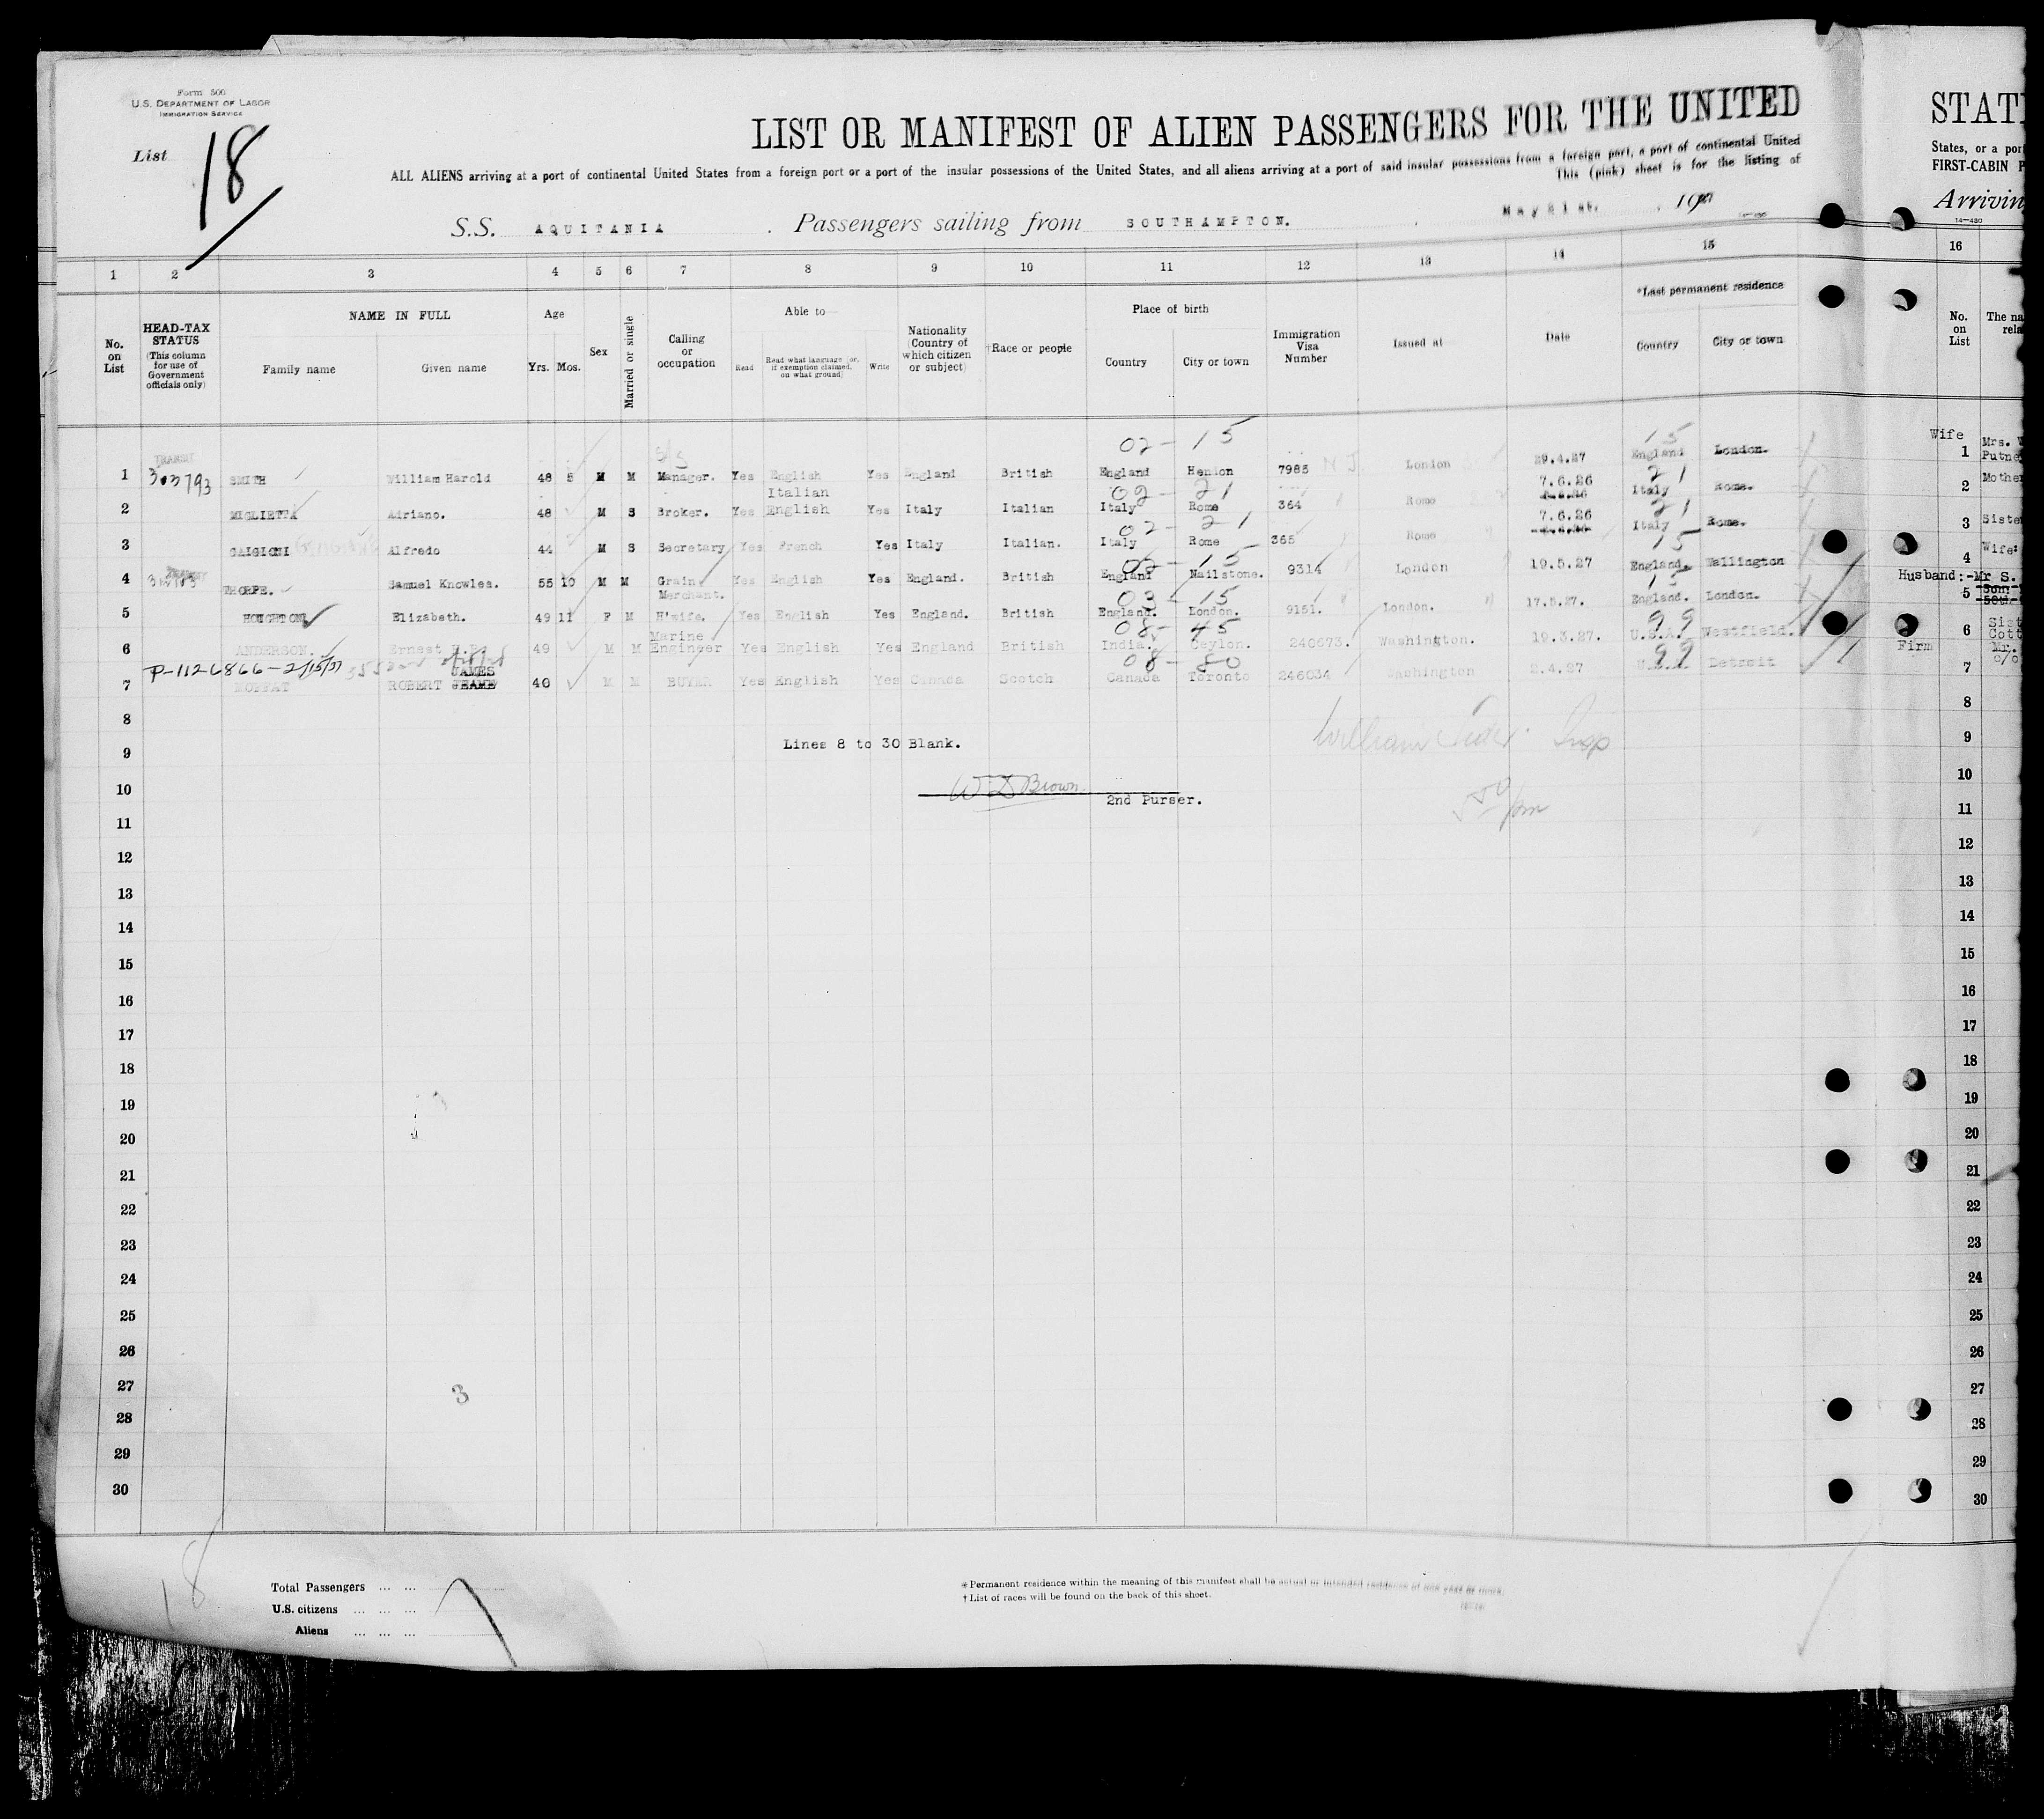 Form 500
U.S. DEPARTMENT OF LABOR
IMMIGRATION SERVICE
List 18
LIST OR MANIFEST OF ALIEN PASSENGERS FOR THE UNITED
ALL ALIENS arriving at a port of continental United States from a foreign port or a port of the insular possessions of the United States, and all aliens arriving at a port of said insular possessions from a foreign port, a port of continental United
This (pink) sheet is for the listing of
S.S. AQUITANIA. Passengers sailing from SOUTHAMPTON. , May 21st. , 1927
STAT
States, or a por
FIRST-CABIN P
Arrivin
14—430
1 2 3 4 5 6 7 8 9 10 11 12 13 14 15 16
No. on List
HEAD-TAX STATUS (This column for use of Government officials only)
NAME IN FULL
Family name Given name
Age
Yrs. Mos.
Sex
Married or single
Calling or occupation
Able to—
Read
Read what language (or, if exemption claimed, on what ground)
Write
Nationality (Country of which citizen or subject)
†Race or people
Place of birth
Country City or town
Immigration Visa Number
Issued at
Date
*Last permanent residence
Country City or town
No. on List
The na
rela
02 - 15 15
1 TRANSIT 303793 SMITH William Harold 48 5 M M Manager. Yes English Yes England British England Hendon 7985 N J London 29.4.27 England London. Wife 1 Mrs. W
Putne
02 - 21 21
2 MIGLIETTA Adriano. 48 M S Broker. Yes Italian English Yes Italy Italian Italy Rome 364 Rome 7.6.26 Italy Rome. 2 Mother
02 - 21 21
3 GAIGIONI Alfredo 44 M S Secretary Yes French Yes Italy Italian. Italy Rome 365 Rome 7.6.26 Italy Rome. 3 Siste
02 - 15 15
4 THORPE. Samuel Knowles. 55 10 M M Grain Merchant. Yes English Yes England. British England Nailstone. 9314 London 19.5.27 England. Wallington 4 Wife:
03 - 15 15
5 HOUGHTON Elizabeth. 49 11 F M H'wife. Yes English Yes England. British England. London. 9151. London. 17.5.27. England. London. Husband:-Mr S. 5
08 - 45 99
6 ANDERSON. Ernest 49 M M Marine Engineer Yes English Yes England British India. Ceylon. 240673. Washington. 19.3.27. U.S.A. Westfield. 6 Sist
Cott
P-1126866-2/15/37
08 - 80 99
7 MOFFAT ROBERT JAMES 40 M M BUYER Yes English Yes Canada Scotch Canada Toronto 246034 Washington 2.4.27 U.S.A. Detroit Firm 7 Mr.
c/o
8 8
9 Lines 8 to 30 Blank. William Insp 9
10 W D Brown 10
2nd Purser.
11 11
12 12
13 13
14 14
15 15
16 16
17 17
18 18
19 19
20 20
21 21
22 22
23 23
24 24
25 25
26 26
27 3 27
28 28
29 29
30 30
18
Total Passengers ... ...
U.S. citizens ... ... ...
Aliens ... ... ...
7
* Permanent residence within the meaning of this manifest shall be actual or intended residence of one year or more.
† List of races will be found on the back of this sheet.